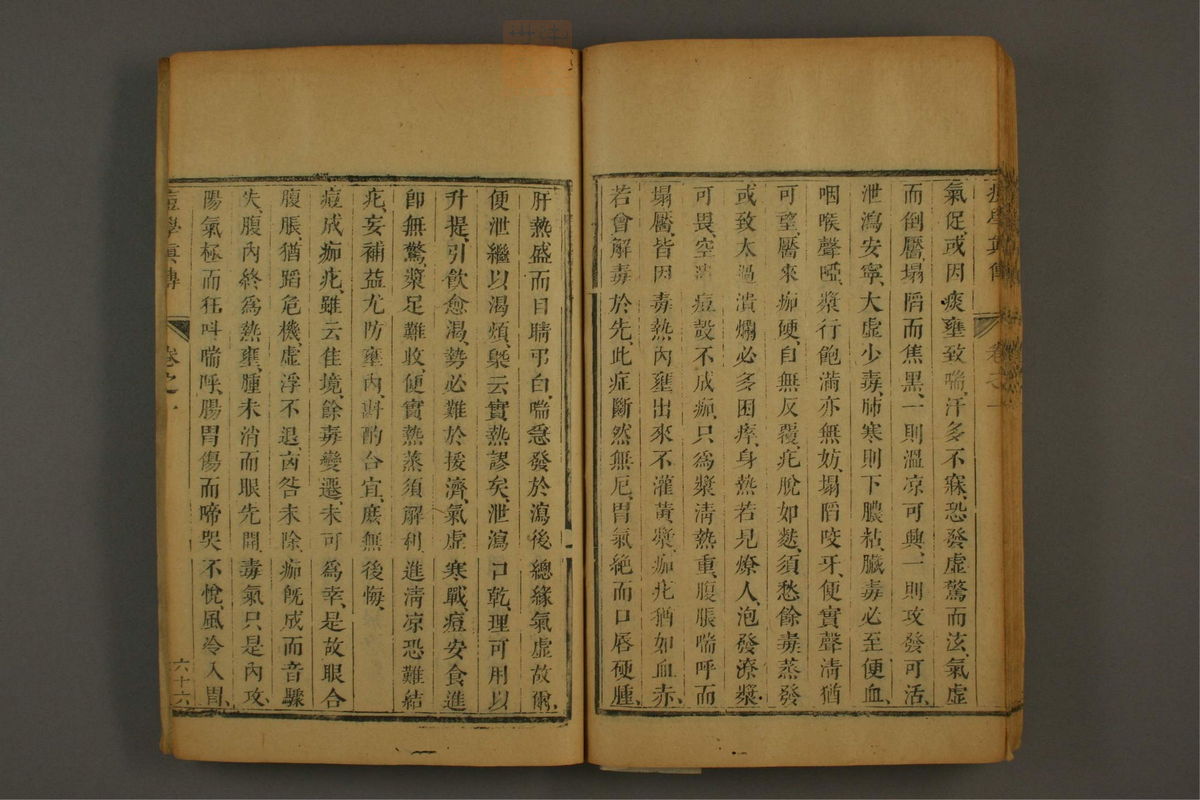 氣促、或因痰壅致喘、汗多不寐、恐發虛驚而泫、氣虛
而倒靨、塌䧟而焦黑、一則溫凉可興、一則攻發可活、
泄瀉安寧、大虛少毒、肺寒則下膿粘、臟毒必至便血、
咽喉聲啞、漿行飽滿亦無妨、塌䧟咬牙、便實聲清猶
可望、靨來痂硬、自無反覆、疕脫如麩、須愁餘毒蒸發
或致太過潰爛必多困瘁、身熱若見燎人、泡發療漿、
可畏、空 痘殼不成痂、只為漿清熱重、腹脹喘呼而
塌靨、皆因毒熱內壅出來不灌黃漿、痂疕猶如血赤、
若會解毒於先、此症斷然無厄、胃氣絶而口唇硬腫、
肝熱盛而目睛弔白、喘急發於瀉後、總緣氣虛故爾、
便泄繼以渴煩、槩云實熱謬矣、泄瀉口乾、理可用以
升提、引飲愈渴、勢必難於援濟、氣虛寒戰、痘安食進
卽無驚、漿足難收、便實熱蒸須解利、進清凉恐難結
疕、妄補益尤防壅內、斟酌合宜、庶無後悔、
痘成痂疕、雖云佳境、餘毒變遷、未可為幸、是故眼合
腹脹、猶蹈危機、虛浮不退、㐫咎未除、痂旣成而音驟
失、腹內終為熱壅、腫未消而眼先開、毒氣只是內攻、
陽氣極而狂叫喘呼、腸胃傷而啼哭不悅、風冷入胃、
痘學眞傳 卷之一 六十六